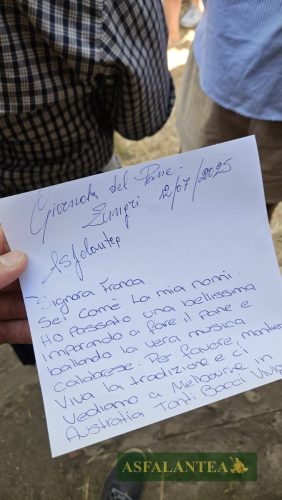 Giornata del Pane
Zungri 12/07/2025
Asfalantea
Signora Franca
Sei come la mia nonni.
Ho Passato una bellissima
imparando a fare il pane e
ballando la vera musica
calabrese. Per favore, mantene
viva la tradizione e ci
vediamo a Melbourne in
Australia Tanti Bacci Viva
ASFALANTEA